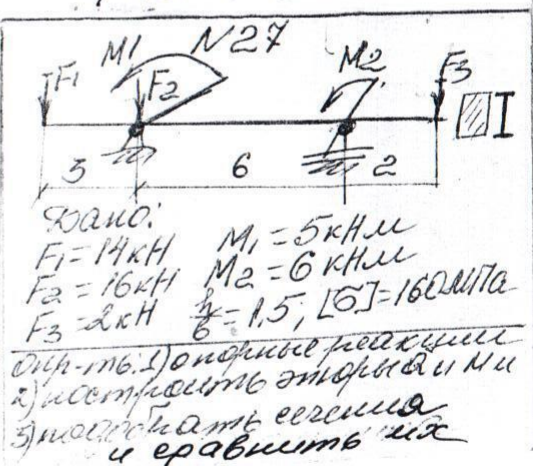 N27
M1
F1
F2
M2
F3
I
3 6 2
Дано:
F1=14кН M1=5кНм
F2=16кН M2=6кНм
F3=2кН h/b=1,5, [σ]=160МПа
Опр-ть: 1) опорные реакции
2) построить эпюры Q и Ми
3) подобрать сечения
и сравнить их